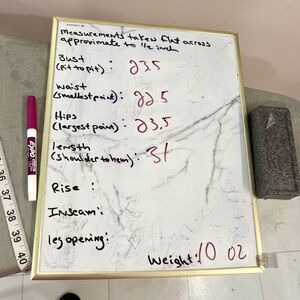 measurements taken flat across
approximate to 1/2 inch
Bust
(Pit to pit): 23.5
Waist
(smallest point): 22.5
Hips
(largest point): 23.5
length
(shoulder to hem): 31
Rise:
Inseam:
leg opening:
Weight: 10 oz
EXPO
35
36
37
38
39
40